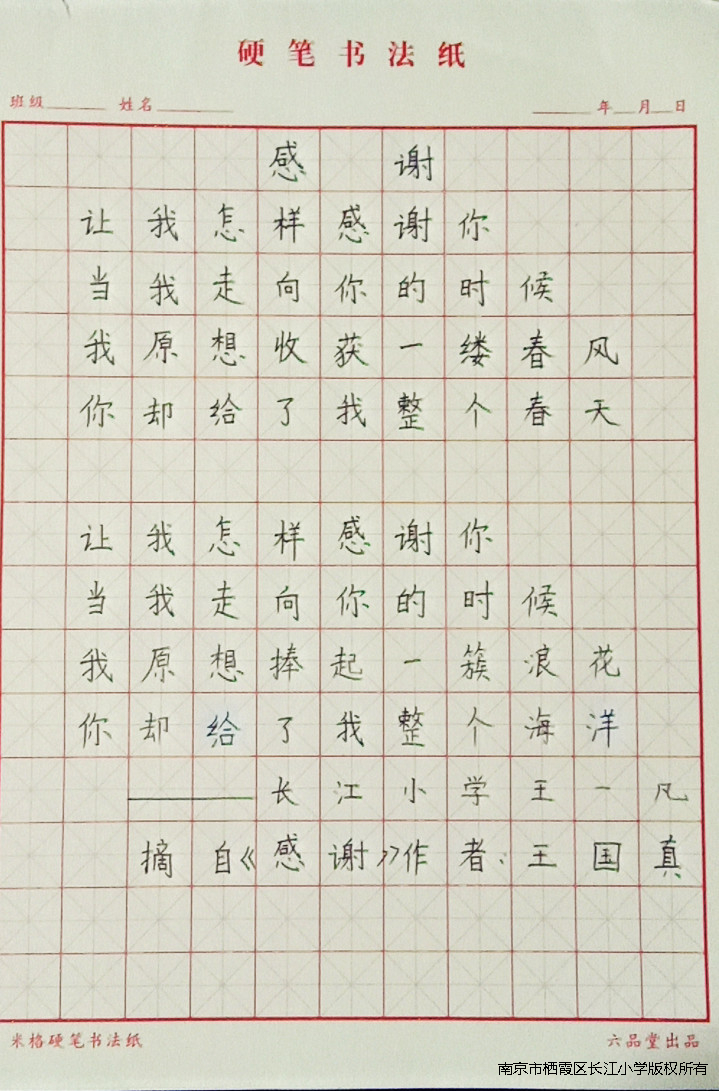 硬笔书法纸
班级 姓名 年 月 日
感谢
让我怎样感谢你
当我走向你的时候
我原想收获一缕春风
你却给了我整个春天
让我怎样感谢你
当我走向你的时候
我原想捧起一簇浪花
你却给了我整个海洋
——长江小学王一凡
摘自《感谢》作者：王国真
米格硬笔书法纸 六品堂出品
南京市栖霞区长江小学版权所有